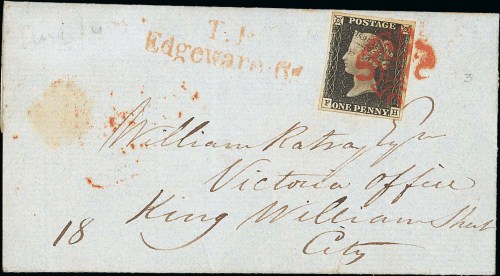 T.P
Edgeware Rd
POSTAGE
ONE PENNY
F H
3
William Rattray Esqr
Victoria Office
King William Street
City
18